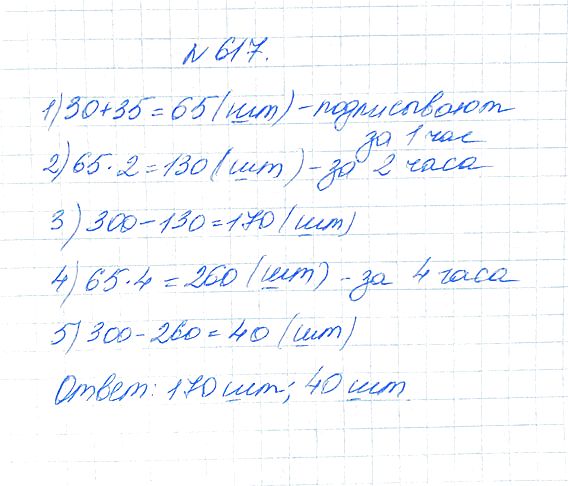 № 617.
1) 30+35=65 (шт) - подписывают
за 1 час
2) 65·2=130 (шт) - за 2 часа
3) 300-130=170 (шт)
4) 65·4=260 (шт) - за 4 часа
5) 300-260=40 (шт)
Ответ: 170 шт; 40 шт.